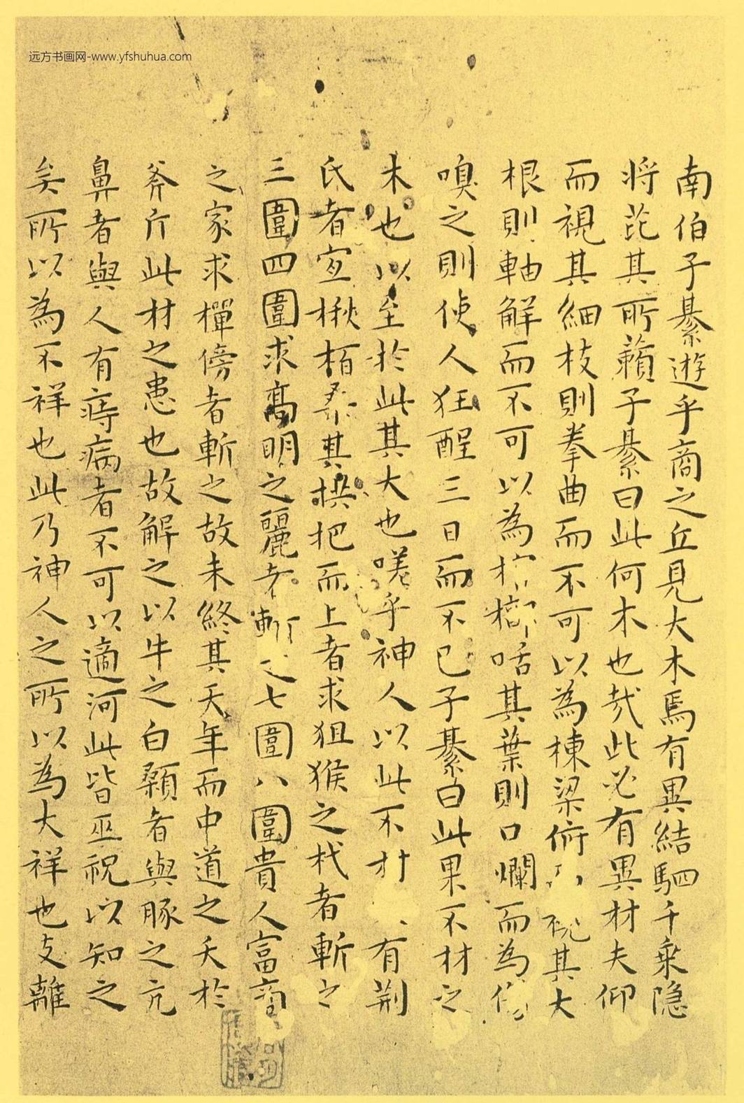 远方书画网-www.yfshuhua.com
南伯子綦遊乎商之丘見大木焉有異結駟千乘隱
將芘其所籟子綦曰此何木也哉此必有異材夫仰
而視其細枝則拳曲而不可以為棟梁俯視其大
根則軸解而不可以為棺槨咶其葉則口爛而為傷
嗅之則使人狂酲三日而不已子綦曰此果不材之
木也以至於此其大也嗟乎神人以此不材有荊
氏者宜楸栢桑其拱把而上者求狙猴之杙者斬之
三圍四圍求高明之麗者斬之七圍八圍貴人富商
之家求樿傍者斬之故未終其天年而中道之夭於
斧斤此材之患也故解之以牛之白顙者與豚之亢
鼻者與人有痔病者不可以適河此皆巫祝以知之
矣所以為不祥也此乃神人之所以為大祥也支離